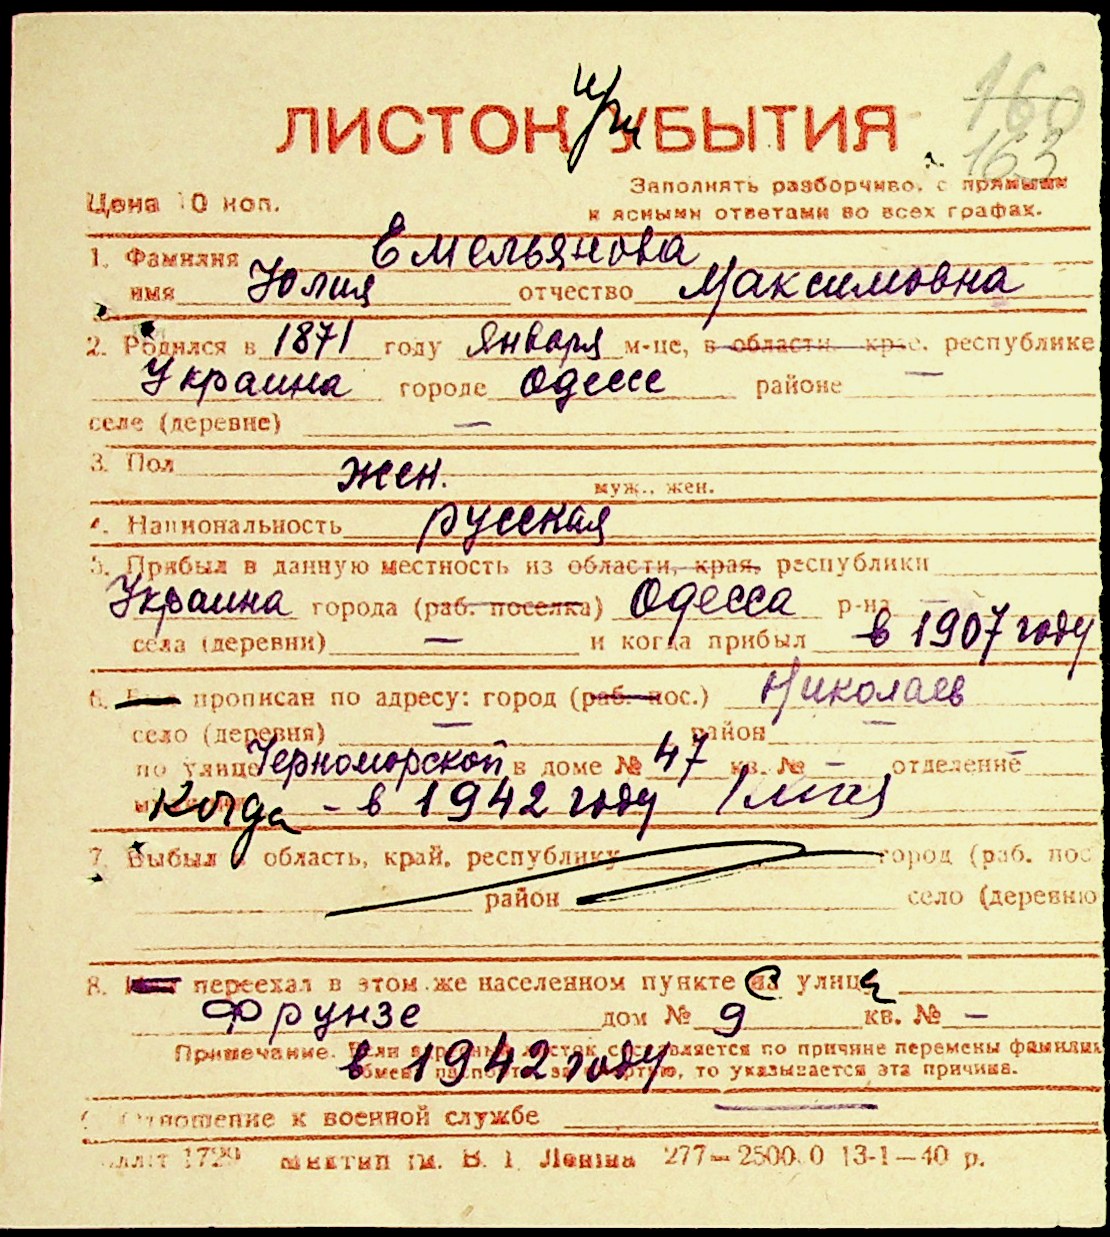 160
163
ЛИСТОК при УБЫТИЯ
Цена 10 коп.
Заполнять разборчиво, с прямыми
и ясными ответами во всех графах.
1. Фамилия Емельянова
имя Юлия отчество Максимовна
2. Родился в 1871 году января м-це, в области, крае, республике
Украина городе Одессе районе —
селе (деревне) —
3. Пол жен.
муж., жен.
4. Национальность русская
5. Прибыл в данную местность из области, края, республики
Украина города (раб. поселка) Одесса р-на —
села (деревни) — и когда прибыл в 1907 году
6. прописан по адресу: город (раб. пос.) Николаев
село (деревня) — район —
по улице Черноморской в доме № 47 кв. № — отделение —
Когда - в 1942 году 1 мая
7. Выбыл в область, край, республику город (раб. пос
район село (деревню
8. переехал в этом же населенном пункте с улицы
Фрунзе дом № 9 кв. № —
Примечание. Если адресный листок составляется по причине перемены фамилии,
обмена паспорта, за смертью, то указывается эта причина.
в 1942 году
Отношение к военной службе
277—2500.0 13-1—40 р.